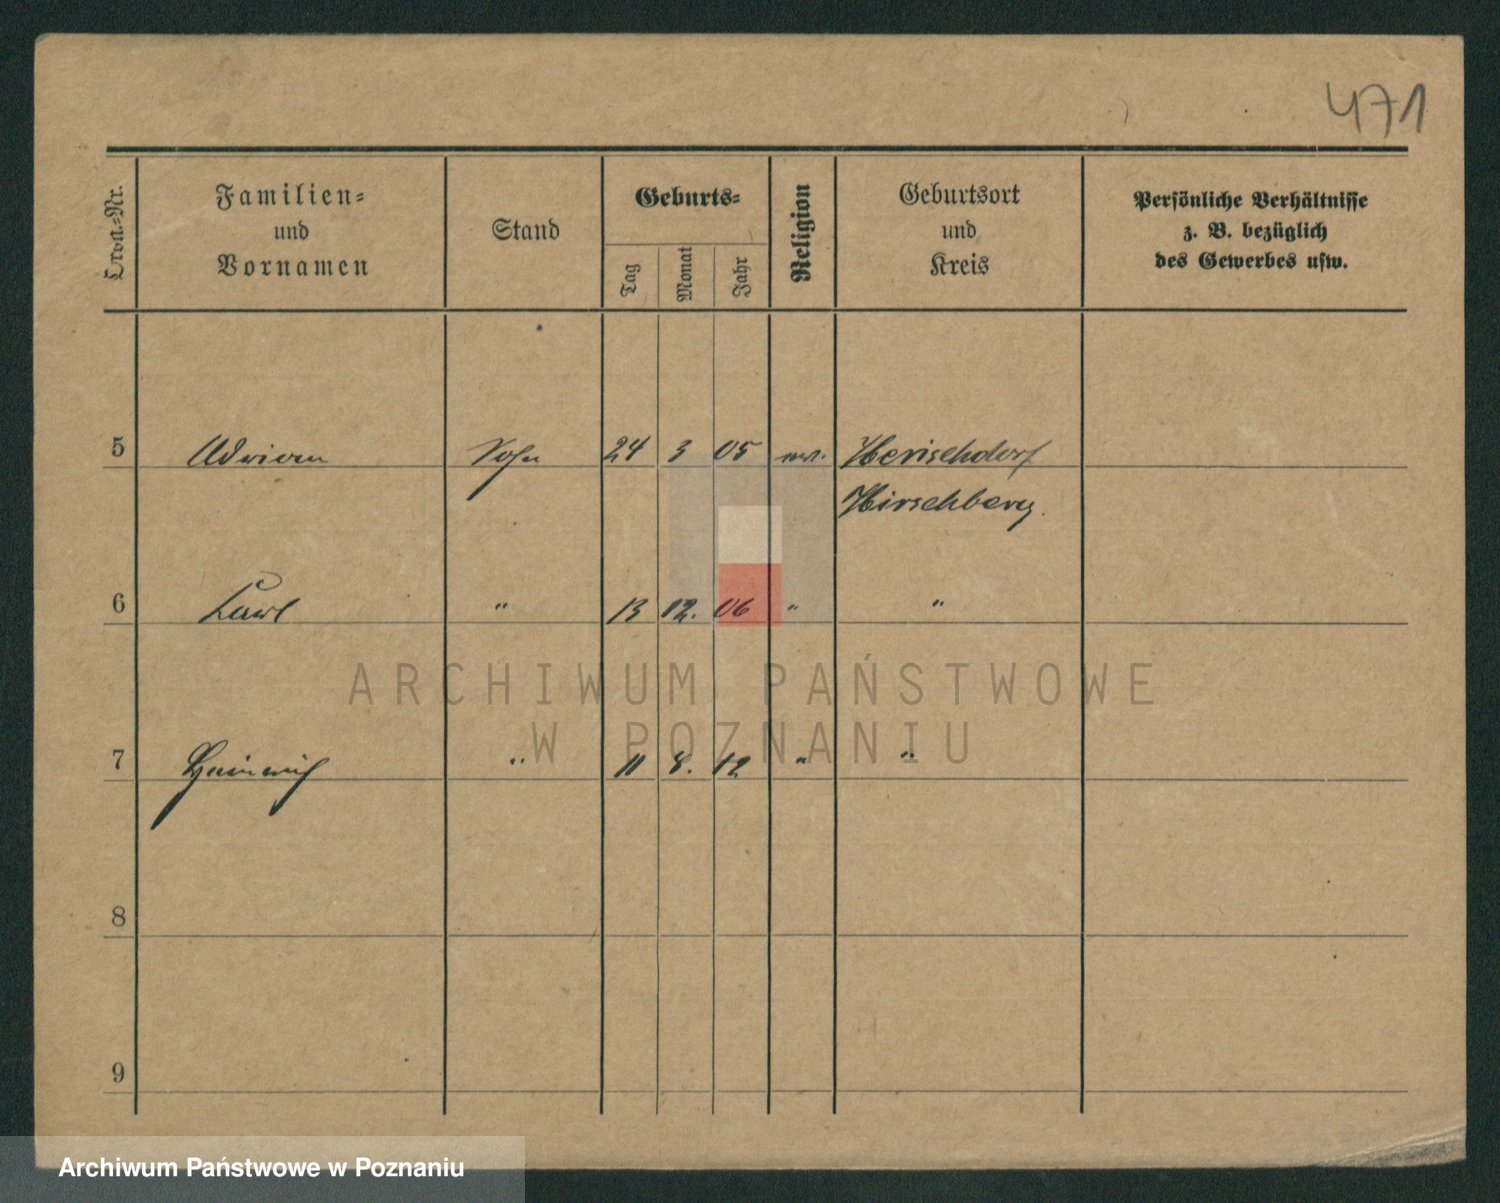 471
Lfda.-Nr.
Familien-
und
Vornamen
Stand
Geburts-
Tag
Monat
Jahr
Religion
Geburtsort
und
Kreis
Persönliche Verhältnisse
z. B. bezüglich
des Gewerbes usw.
5 Adrian Sohn 24 3 05 Herischdorf
Hirschberg.
6 Karl " 13 12. 06 " "
ARCHIWUM PAŃSTWOWE
W POZNANIU
7 Heinrich " 11 8. 12 " "
8
9
Archiwum Państwowe w Poznaniu